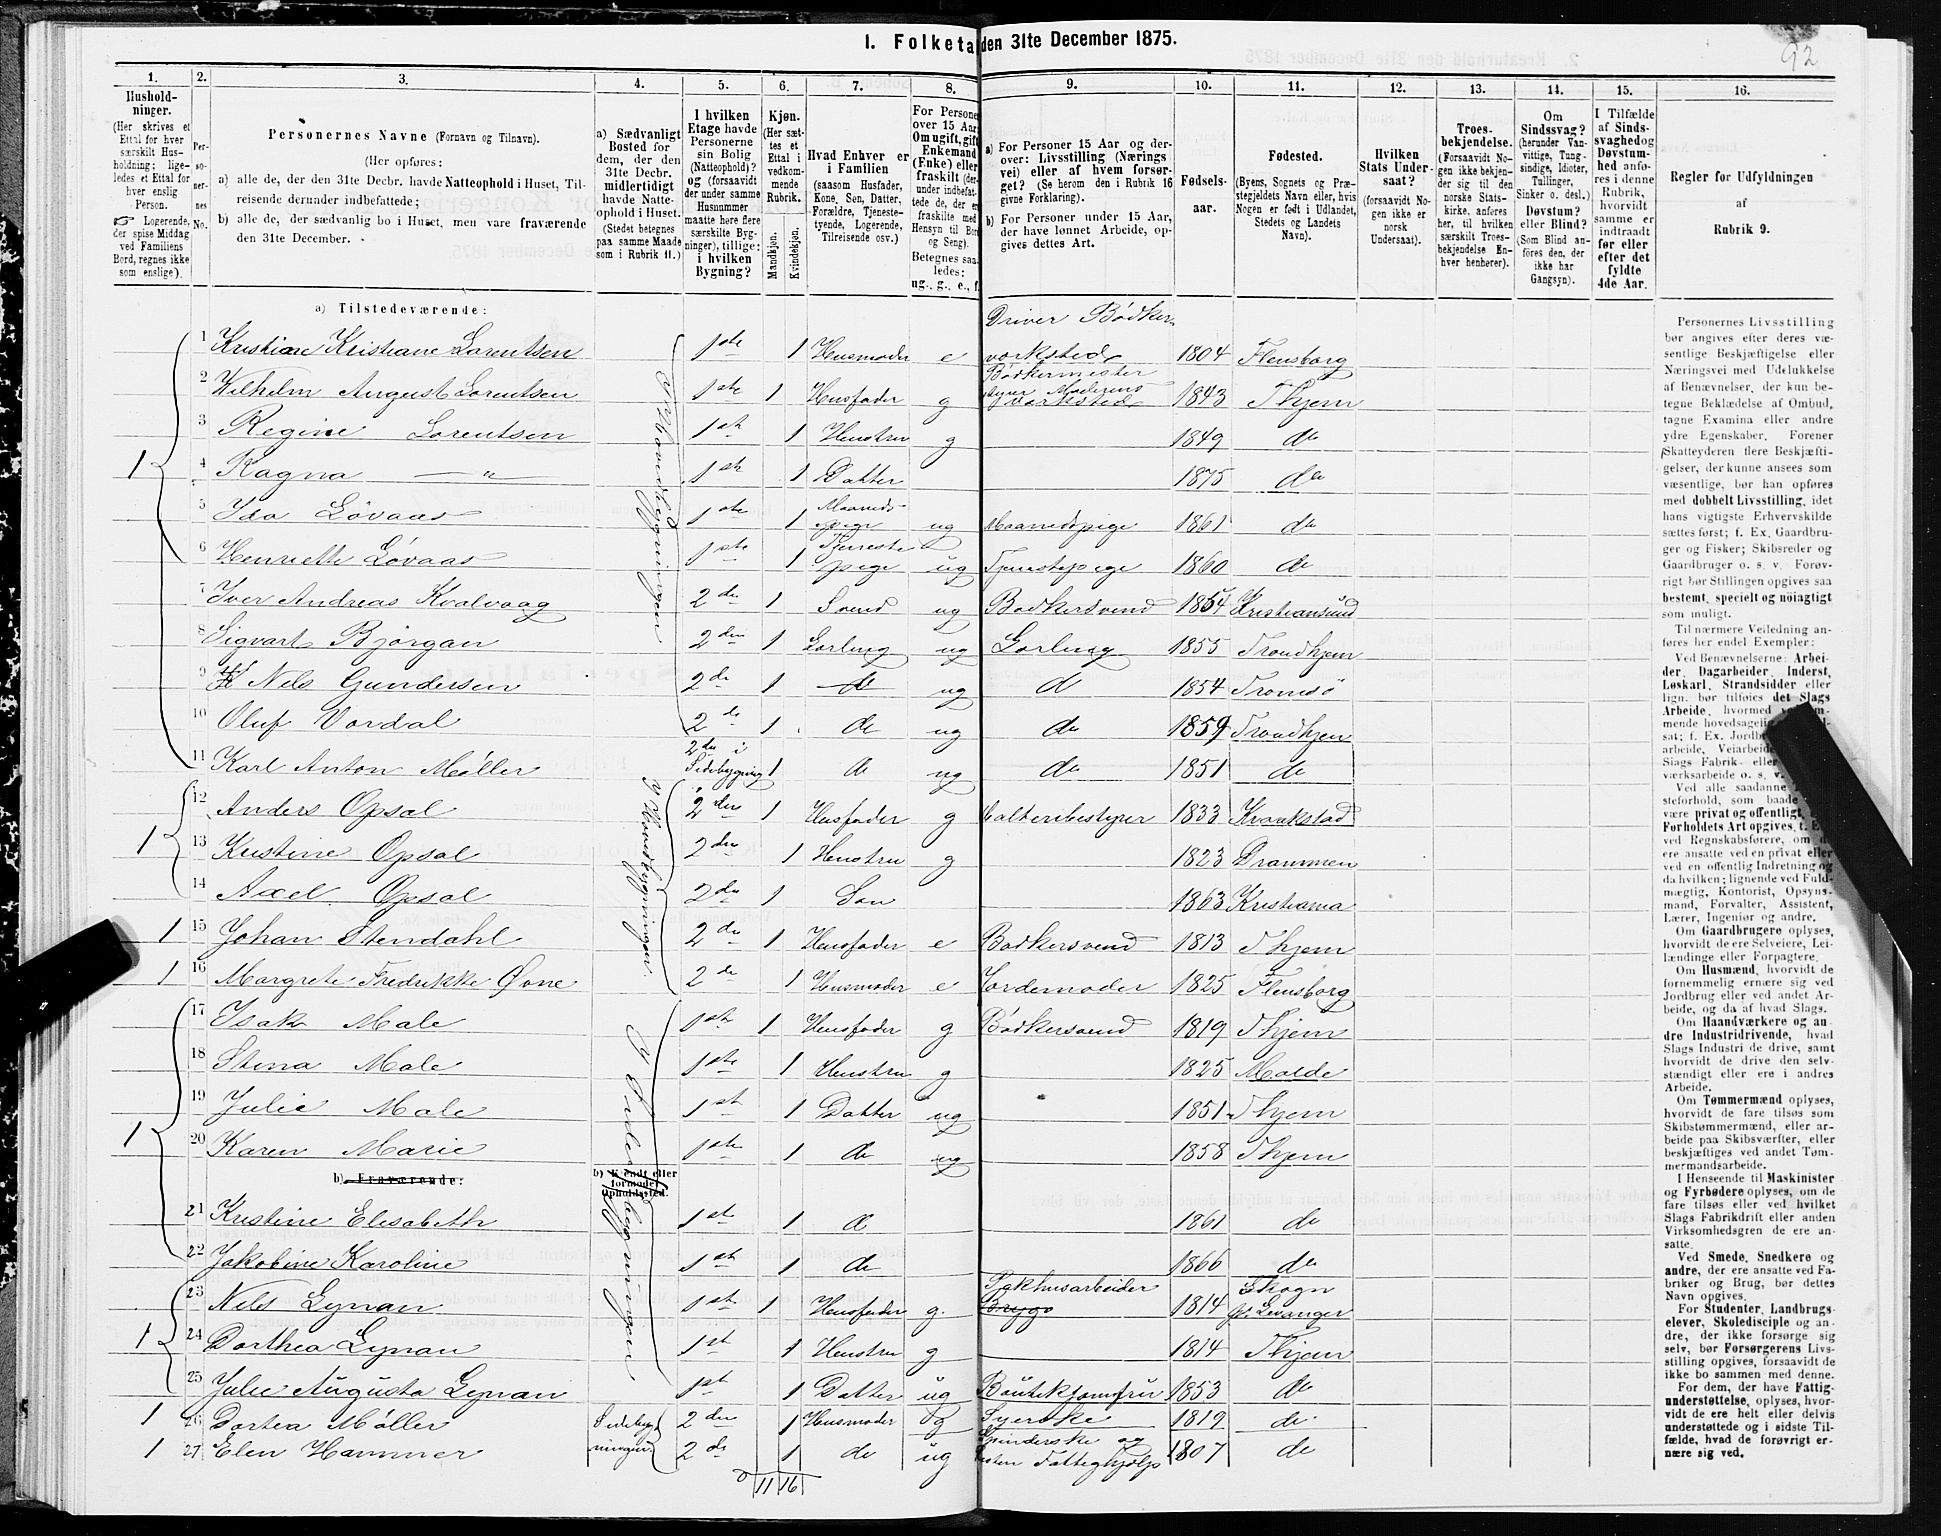 1. Folketa den 31te December 1875.
92
1. 2. 3. 4. 5. 6. 7. 8. 9. 10. 11. 12. 13. 14. 15. 16.
Hushold-
ninger.
(Her skrives et
Ettal for hver
særskilt Hus-
holdning; lige-
ledes et Ettal for
hver enslig
Person.
☞ Logerende,
der spise Middag
ved Familiens
Bord, regnes ikke
som enslige).
Per-
so-
ner-
nes
No.
Personernes Navne (Fornavn og Tilnavn).
(Her opføres:
a) alle de, der den 31te Decbr. havde Natteophold i Huset, Til-
reisende derunder indbefattede;
b) alle de, der sædvanlig bo i Huset, men vare fraværende
den 31te December.
a) Sædvanligt
Bosted for
dem, der den
31te Decbr.
midlertidigt
havde Natte-
ophold i Huset.
(Stedet betegnes
paa samme Maade
som i Rubrik 11.)
I hvilken
Etage havde
Personerne
sin Bolig
(Natteophold)?
og (forsaavidt
der under samme
Husnummer
maatte høre flere
særskilte Byg-
ninger), tillige:
i hvilken
Bygning?
Kjøn.
(Her sæt-
tes et
Ettal i
vedkom-
mende
Rubrik.
Mandkjøn.
Kvindekjøn.
Hvad Enhver er
i Familien
(saasom Husfader,
Kone, Søn, Datter,
Forældre, Tjeneste-
tyende, Logerende,
Tilreisende osv.)
For Persone
over 15 Aar
Om ugift, gift
Enkemand
(Enke) eller
fraskilt (der-
under indbefat-
tede de, der er
fraskilte med
Hensyn til Bord
og Seng).
Betegnes saa-
ledes:
ug., g., e., f.
a) For Personer 15 Aar og der-
over: Livsstilling (Nærings
vei) eller af hvem forsør-
get? (Se herom den i Rubrik 16
givne Forklaring).
b) For Personer under 15 Aar,
der have lønnet Arbeide, op-
gives dettes Art.
Fødsels-
aar.
Fødested.
(Byens, Sognets og Præ-
stegjeldets Navn eller, hvis
Nogen er født i Udlandet,
Stedets og Landets
Navn).
Hvilken
Stats Under-
saat?
(forsaavidt No-
gen ikke er
norsk
Undersaat).
Troes-
bekjendelse.
(Forsaavidt No-
gen ikke bekjen-
der sig til den
norske Stats-
kirke, anføres
her, til hvilken
særskilt Troes-
bekjendelse En-
hver henhører).
Om
Sindssvag?
(herunder Van-
vittige, Tung-
sindige, Idioter,
Tullinger,
Sinker o. desl.)
Døvstum?
eller Blind?
(Som Blind an-
føres den, der
ikke har
Gangsyn).
I Tilfælde
af Sinds-
svaghed og
Døvstum-
hed anfø-
res i denne
Rubrik,
hvorvidt
samme er
indtraadt
før eller
efter det
fyldte
4de Aar.
Regler for Udfyldningen
af
Rubrik 9.
a) Tilstedeværende:
Driver Bødker
1 Kristiane Kristiane Lorentsen 1ste 1 Husmoder e værksted 1804 Flensborg
Bødkermester
2 Wilhelm August Lorentsen 1ste 1 Husfader g styrer Moderens værksted 1843 Thjem
3 Regine Lorentsen 1ste 1 Hustru g 1849 do
1 4 Ragna — " 1ste 1 Datter 1875 do
5 Ida Løvaas 1ste 1 Maanedspige ug Maanedspige 1861 do
6 Henriette Løvaas 1ste 1 Tjenestepige ug Tjenestepige 1860 do
i Hovedbygningen
7 Iver Andreas Kvalvaag 2den 1 Svend ug Bødkersvend 1854 Kristiansund
8 Sigvart Bjørgan 2den 1 Lærling ug Lærling 1855 Trondhjem
9 Nils Gundersen 2de 1 do ug do 1854 Tromsø
10 Oluf Vordal 2de 1 do ug do 1859 Trondhjem
11 Karl Anton Møller 2den i Sidebygning 1 do ug do 1851 do
12 Anders Opsal 2den 1 Husfader g Malteribestyrer 1833 Kraakstad
1 13 Kristine Opsal 2den 1 Hustru g 1823 Drammen
14 Axel Opsal 2den 1 Søn 1863 Kristiania
i Hovedbygningen.
1 15 Johan Stendahl 2de 1 Husfader e Bødkersvend 1813 Thjem
1 16 Margrete Fredrikke Øvne 2de 1 Husmoder e Jordemoder 1825 Flensborg
17 Isak Male 1ste 1 Husfader g Bødkersvend 1819 Thjem
18 Stina Male 1ste 1 Hustru g 1825 Molde
19 Julie Male 1ste 1 Datter ug 1851 Thjem
1 20 Karen Marie 1ste 1 do ug 1858 Thjem
b) Fraværende:
b) Kjendt eller
formodet
Opholdssted.
i Sidebygningen
21 Kristine Elisabeth 1ste 1 do 1861 do
22 Jakobine Karoline 1ste 1 do 1866 do
23 Nils Lynan 1ste 1 Husfader g. Pakhusarbeider Brygo 1814 Skogn Pr. Levanger
1 24 Dorthea Lynan 1ste 1 Hustru g 1814 Thjem
25 Julie Augusta Lynan 1ste 1 Datter ug Boutikjomfru 1853 do
1 26 Dortea Møller Sidebyg- 2den 1 Husmoder ug Syerske 1819 do
1 27 Elen Hammer ningen 2de 1 do ug Spinderske og Fattighjælp 1807 do
11 16
Personernes Livsstilling
bør angives efter deres væ-
sentlige Beskjæftigelse eller
Næringsvei med Udelukkelse
af Benævnelser, der kun be-
tegne Beklædelse af Ombud,
tagne Examina eller andre
ydre Egenskaber. Forener
Skatteyderen flere Beskjæfti-
gelser, der kunne ansees som
væsentlige, bør han opføres
med dobbelt Livsstilling, idet
hans vigtigste Erhvervskilde
sættes først; f. Ex. Gaardbru-
ger og Fisker; Skibsreder og
Gaardbruger o. s. v. Forøv-
rigt bør Stillingen opgives saa
bestemt, specielt og nöiagtigt
som muligt.
Til nærmere Veiledning an-
føres her endel Exempler:
Ved Benævnelserne: Arbei-
der, Dagarbeider, Inderst,
Løskarl, Strandsidder eller
lign. bør tilføies det Slags
Arbeide, hvormed
mende hovedsagelig
sat; f. Ex.
arbeide, Veiarbeide
Slags Fabrik- eller
værksarbeide o. s. v.
Ved alle saadanne
steforhold, som baade
være privat og offentligt,
Forholdets Art opgives, t. Ex.
ved Regnskabsførere, om de
ere ansatte ved en privat eller
ved en offentlig Indretning og
da hvilken; lignende ved Fuld-
mægtig, Kontorist, Opsyns-
mand, Forvalter, Assistent,
Lærer, Ingeniør og andre.
Om Gaardbrugere oplyses,
hvorvidt de ere Selveiere, Lei-
lændinge eller Forpagtere.
Om Husmænd, hvorvidt de
fornemmelig ernære sig ved
Jordbrug eller ved andet Ar-
beide, og da af hvad Slags.
Om Haandværkere og an-
dre Industridrivende, hvad
Slags Industri de drive, samt
hvorvidt de drive den selv-
stændigt eller ere i andres
Arbeide.
Om Tømmermænd oplyses,
hvorvidt de fare tilsøs som
Skibstømmermænd, eller ar-
beide paa Skibsværfter, eller
beskjæftiges ved andet Tøm-
mermandsarbeide.
I Henseende til Maskinister
og Fyrbødere oplyses, om de
fare tilsøs eller ved hvilket
Slags Fabrikdrift eller anden
Virksomhedsgren de ere an-
satte.
Ved Smede, Snedkere og
andre, der ere ansatte ved Fa-
briker og Brug, bør dettes
Navn opgives.
For Studenter, Landbrugs-
elever, Skoledisciple og an-
dre, der ikke forsørge sig
selv, bør Forsørgerens Livs-
stilling opgives, forsaavidt de
ikke bo sammen med denne.
For dem, der have Fattig-
understøttelse, oplyses, hvor-
vidt de ere helt eller delvis
understøttede og i sidste Til-
fælde, hvad de forøvrigt er-
nære sig ved.